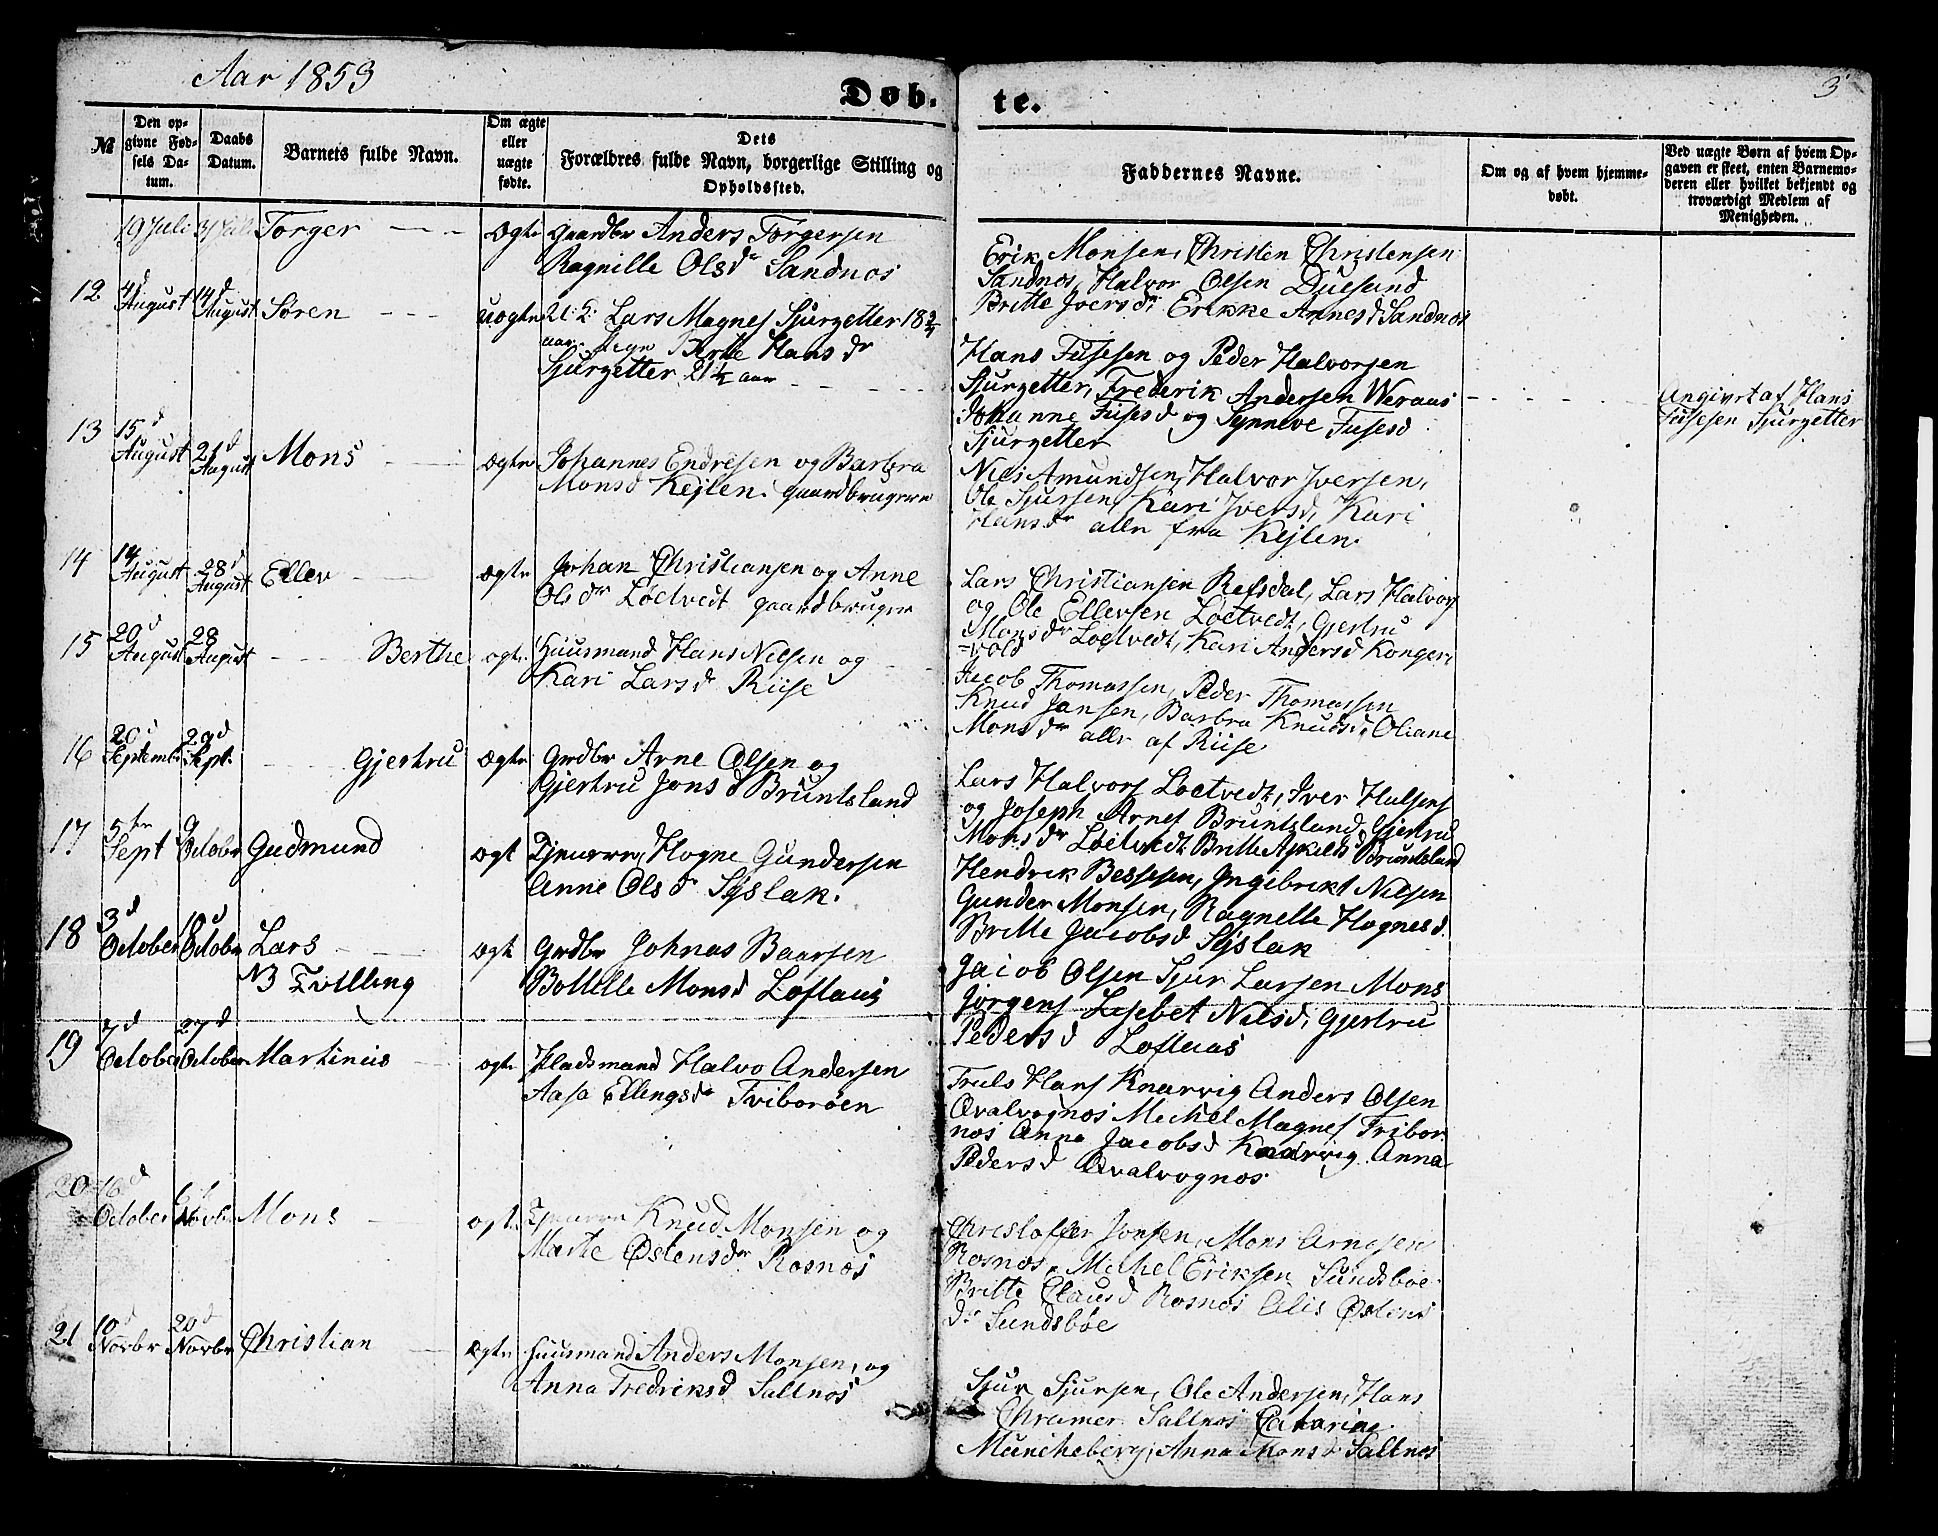 Aar 1853
Døb-
te.
3
№
Den op-
givne Fød-
sels Da-
tum.
Daabs
Datum.
Barnets fulde Navn.
Om ægte
eller
uægte
fødte.
Dets
Forældres fulde Navn, borgerlige Stilling og
Opholdssted.
Faddernes Navne.
Om og af hvem hjemme-
døbt.
Ved uægte Børn af hvem Op-
gaven er skeet, enten Barnemo-
deren eller hvilket bekjendt og
troværdigt Medlem af
Menigheden.
19 Juli
31 Juli
Torger
Ægte
Gaardbr Anders Torgersen
Ragnille Olsdr Sandnøs
Erik Monsen, Christen Christensen
Sandnøs, Halvor Olsen Duesund
Britte Iversdr Erikke Annesd Sandnøs
12
4d
August
14d
August
Søren
uægte
Lars Magnes Sjurzetter
aar Berte Hansdr
Sjurzetter 21½ aar
Hans Fusesen og Peder Halvorsen
Sjurzetter, Frederik Andersen Weraas
Johanne Fusesd og Synneve Fusesd
Sjurzetter
Angivet af Hans
Fusesen Sjurzetter
13
15d
August
21d
August
Mons
Ægte
Johannes Endresen og Barbra
Monsd Kejlen. gaardbrugere
Niels Amundsen, Halvor Iversen,
Ole Sjursen, Kari Iversd, Kari
Hansdr alle fra Kejlen.
14
14
August
28d
August
Ellev
Ægte
Johan Christiansen og Anne
Olsdr Løetvedt gaardbruger
Lars Christiansen Refsdal, Lars Halvors
og Ole Ellevsen Løetvedt, Gjertru
Monsdr Løetvedt, Kari Andersd Kongers
=vold
15
20d
August
28
August
Berthe
ægte
Huusmand Hans Nilsen og
Kari Larsd Riise
Jacob Thomassen, Peder Thomassen
Knud Jansen, Barbra Knudsd, Oliane
Monsdr alle af Riise
16
20d
Septembr
29d
Sept.
Gjertru
Ægte
Grdbr Arne Olsen og
Gjertru Jonsd Bruntsland
Lars Halvors Løetvedt, Iver Halsens
og Joseph Arnes Bruntsland, Gjertrud
Monsdr Løetvedt Britte Askelds Bruntsland
17
5te
Sept
9
Octobr
Gudmund
Ægt
Tjenere, Hogne Gundersen
Anne Olsdr Sÿslak.
Hendrik Bessesen, Ingebrikt Nilsen
Gunder Monsen, Ragnelle Hognesd.
Britte Jacobsd Sÿslak
18
3d
October
10d
Octobr
Lars
NB Tvilling
Ægt
Grdbr Johnas Baarsen
Botlelle Monsd Løflaas
Jacob Olsen Sjur Larsen Mons
Jørgens Lisebet Nilsd, Gjertru
Pedersd Løflaas
19
7d
October
27d
October
Martinus
ægte
Pladsmand Halvo Andersen
Aasa Ellingsdr Tviborøen
Truls Hans Knarvig Anders Olsen
Qvalvognøs Mickel Magnes Tvibor
nøs Anna Jacobsd Knarvig Anna
Pedersd Qvalvognøs
20
16d
October
6d
Novbr
Mons
ægt.
Tjenere Knud Monsen og
Marte Østensdr Rosnøs
Christoffer Jonsen, Mons Arnesen
Rosnøs, Mickel Eriksen Sundsbøe
Britte Clausd Rosnøs Alis Østens
dr Sundsbøe
21
10d
Novbr
20d
Novbr
Christian
Ægte
Huusmand Anders Monsen, og
Anna Fredriksd Saltnøs
Sjur Sjursen, Ole Andersen, Hans
Chramer Saltnøs Catarina
Muncheberg, Anna Monsd Saltnøs